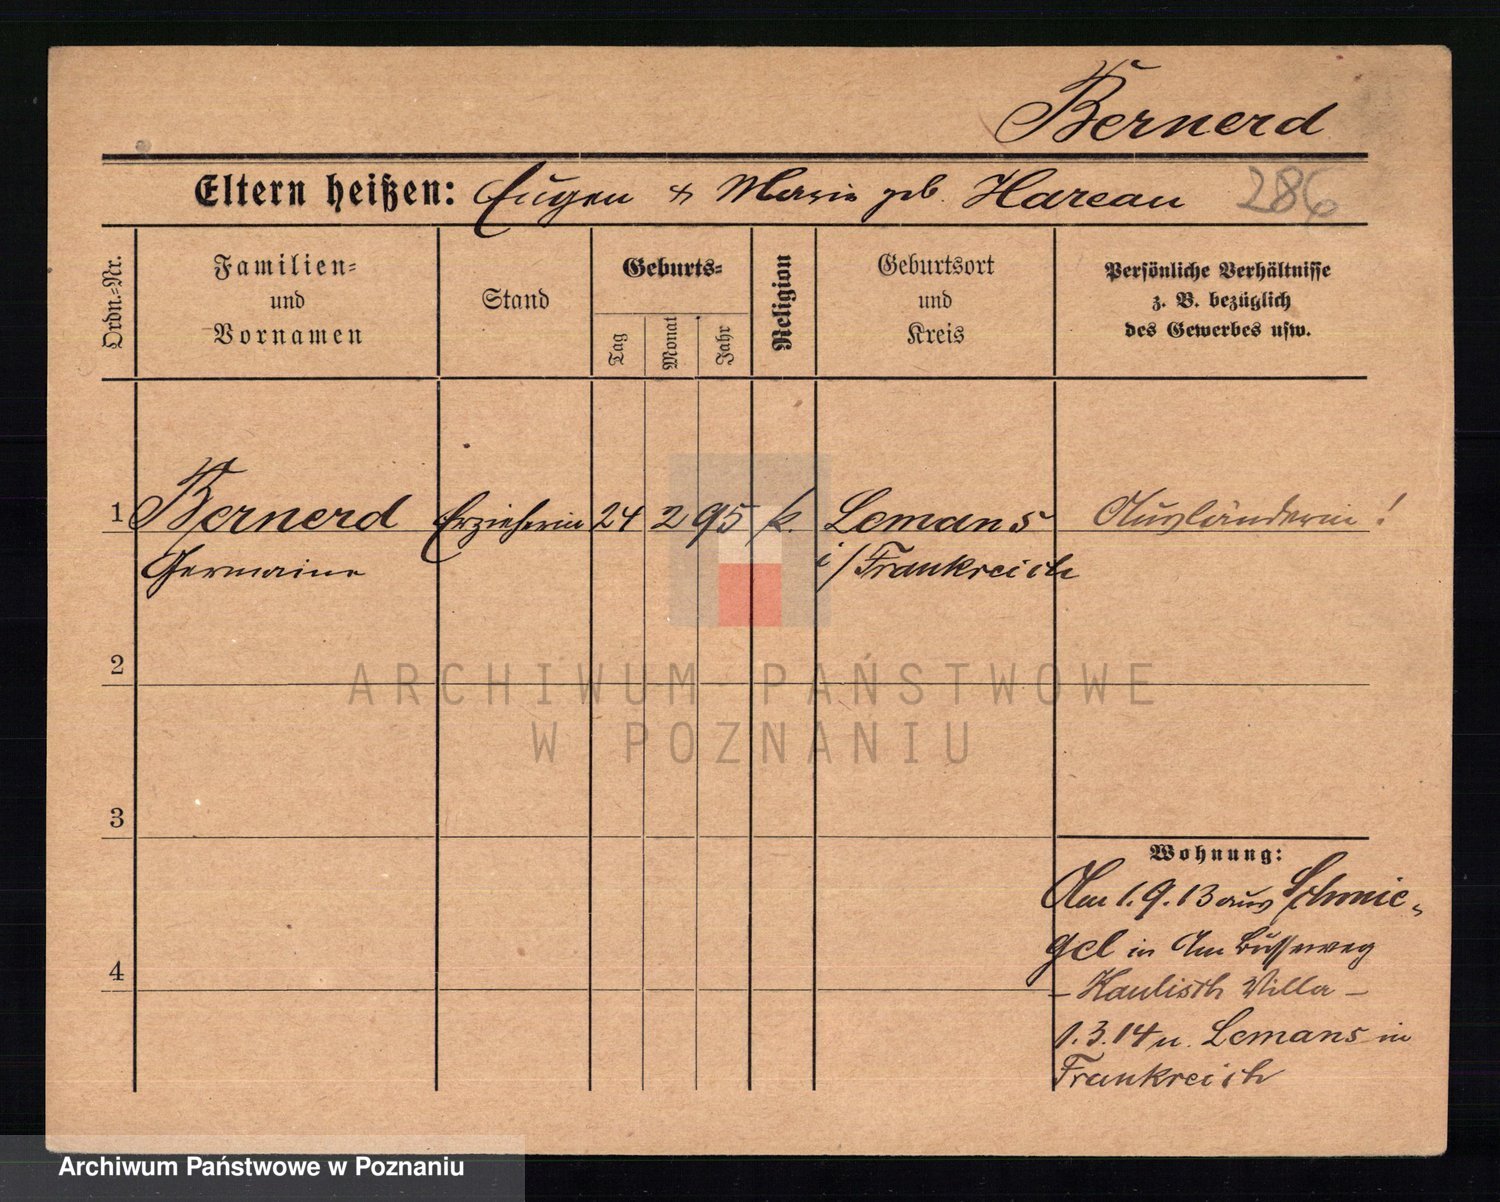 Bernerd
Eltern heißen: Eugen & Marie geb. Hareau 286
Ordn.-Nr.
Familien-
und
Vornamen
Stand
Geburts-
Tag
Monat
Jahr
Religion
Geburtsort
und
Kreis
Persönliche Verhältnisse
z. B. bezüglich
des Gewerbes usw.
1 Bernerd Erzieherin 24 2 95 k. Lemans Ausländerin!
Germaine i/Frankreich
2
ARCHIWUM PAŃSTWOWE
W POZNANIU
3
Wohnung:
Am 1.9.13 aus Schmie-
gel in Am
4
- Kaulisch Villa -
1.3.14 n. Lemans in
Frankreich
Archiwum Państwowe w Poznaniu